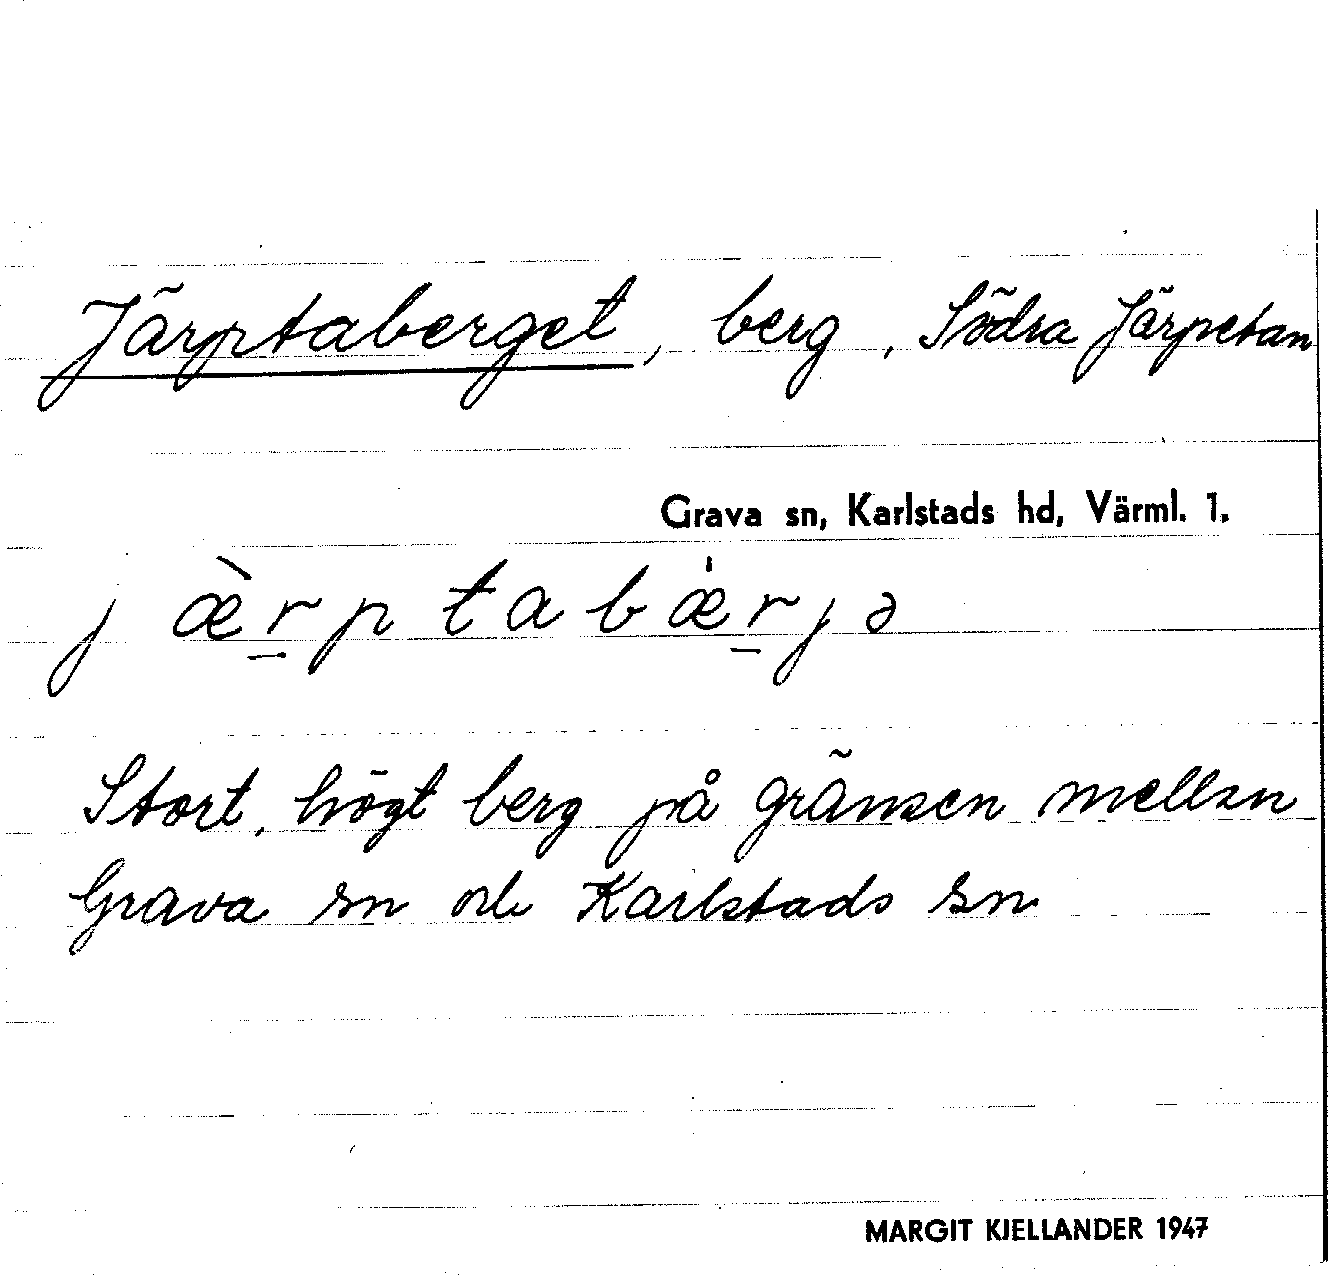 Järptaberget, berg, Södra Järpetan
Grava sn, Karlstads hd, Värml. 1.
jæ̀r̠ptabæ̍r̠jə
Stort, högt berg på gränsen mellan
Grava sn och Karlstads sn
MARGIT KJELLANDER 1947